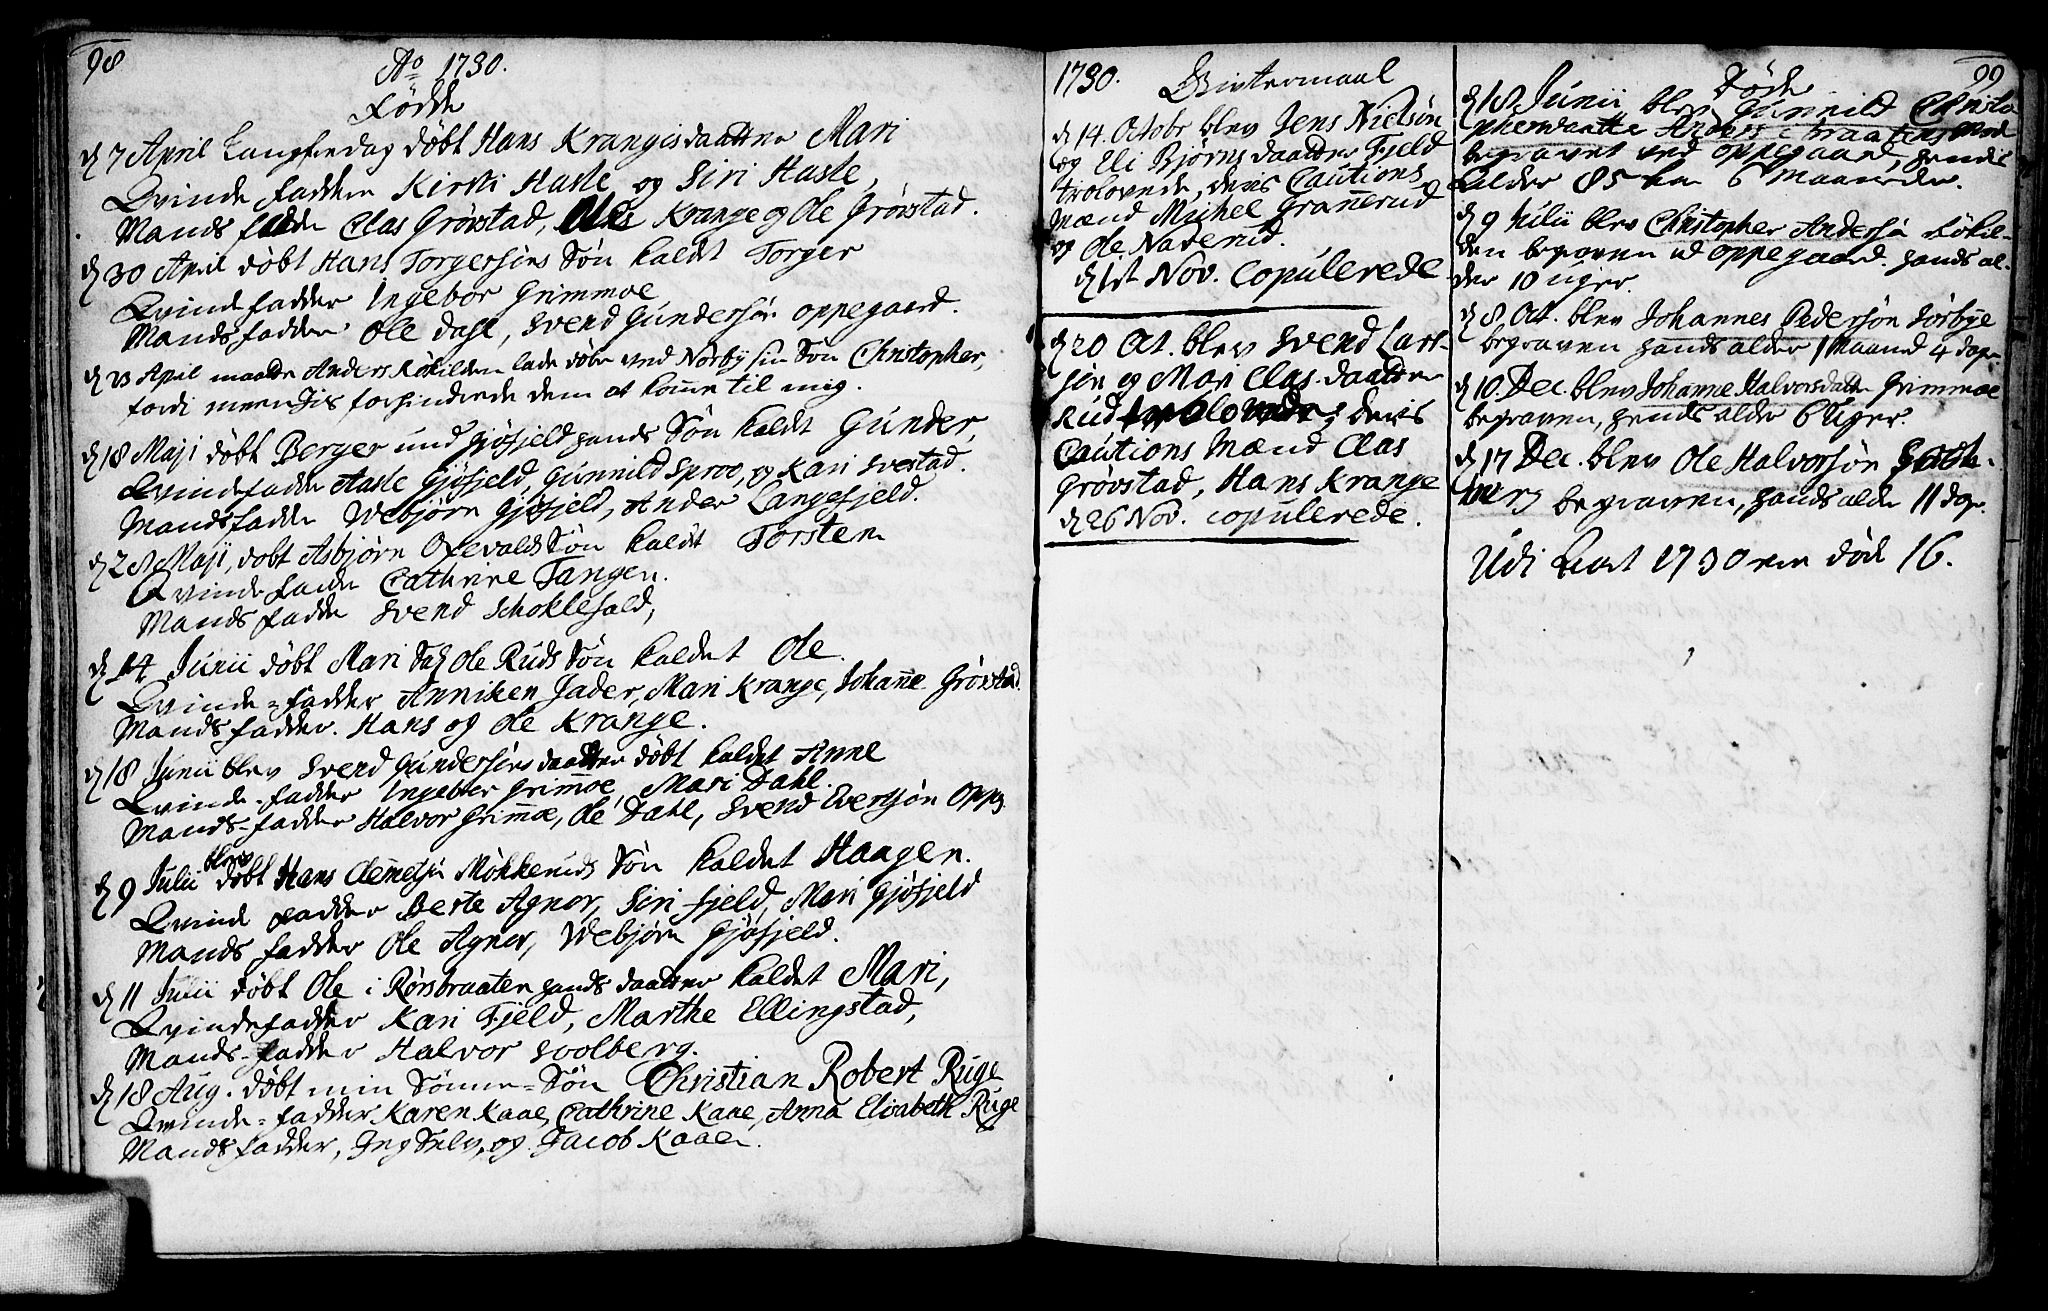 98
Ao 1730.
Fødde
d 7 April Langfredag døbt Hans Krangisdaatter Mari
Qvinde faddere Kirsti Hasle og Siri Hasle,
Mands fadder Clas Grøvstad, Ole Krange og Ole Grøvstad.
d 30 April døbt Hans Torgersøns Søn kaldet Torger
Qvindefadder Ingebor Grimmoe
Mandsfadder Ole Dahl, Svend Gundersøn Oppegaard.
d 23 April maatte Anders Køhilden lade døbe ved Norby sin Søn Christopher,
fordi meen Jis forhindrede dem at kome til mig.
d 18 Maji døbt Berger und Gjøfjeld hands Søn kaldet Gunder,
Qvindefadder Aasle Gjøfjeld, Gunnild Sproo, og Kari Svestad.
Mandsfadder Webjørn Gjøfjeld, Ander Langefjeld.
d 28 Maji, døbt Asbjørn Oxevalds Søn kaldet Torsten
Qvinde fadder Cathrine Tangen.
Mands fadder Svend Schoklefald,
d 14 Junii døbt Mari Sal Ole Ruds Søn kaldet Ole.
Qvinde-fadder Anniken Jader, Mari Krange, Johane Grøvstad.
Mands fadder. Hans og Ole Krange.
d 18 Junii blev Svend Gundersøns daatter døbt kaldet Anne
Qvinde-fadder Ingebor Grimoe, Mari Dahl.
Mands-fadder Halvor Grimoe, Ole Dahl, Svend Eversøn Oppg.
d 9 Julii blev døbt Hans Clemetsøn Mökkeruds Søn kaldet Haagen.
Qvinde fadder Berte Agnor, Siri fjeld, Mari Gjøfjeld
Mands fadder Ole Agnor, Webjørn Gjøfjeld.
d 11 Julii døbt Ole i Rørsbraaten hands daatter kaldet Mari,
Qvindefadder Kari Fjeld, Marthe Ellingstad,
Mands-fadder Halvor Soolberg.
d 18 Aug. døbt min Sønne-Søn Christian Robert Ruge
Qvinde-fadder Karen Kaae, Cathrine Kaae, Anna Elisabeth Ruge
Mands fadder, Jeg Selv, og Jacob Kaae.
1730. Givtermaal
d 14. Octobr blev Jens Nielsøn
og Eli Bjørnsdaatter Fjeld
trolovede, deris Cautions
Mænd Michel Granerud
og Ole Naverud.
d 1st Nov. Copulerede
d 20 Oct. blev Svend Lars-
søn og Mari Clas-daatter
Rud trolovede; deris
Cautions Mænd Clas
Grøvstad, Hans Krange
d 26 Nov. copulerede.
99
Døde
d 18 Junii blev Gunnild Christo-
pherdaatter Anders Braatens Mod
begravet ved Oppegaard, hendis
alder 85 aar 6 Maaneder.
d 9 Julii blev Christopher Andersøn Køhil-
den begraven ved Oppegaard. hands al-
der 10 uger.
d 8 Oct. blev Johannes Pedersøn Sørbye
begraven hands alder 1 Maaned 4 dage
d 10 Dec. blev Johanne Halvorsdatter Grimmoe
begraven, hends alder 6 Uger.
d 17 Dec. blev Ole Halvorsøn
begraven, hands alder 11 dage.
Udi Aaret 1730 ere døde 16.